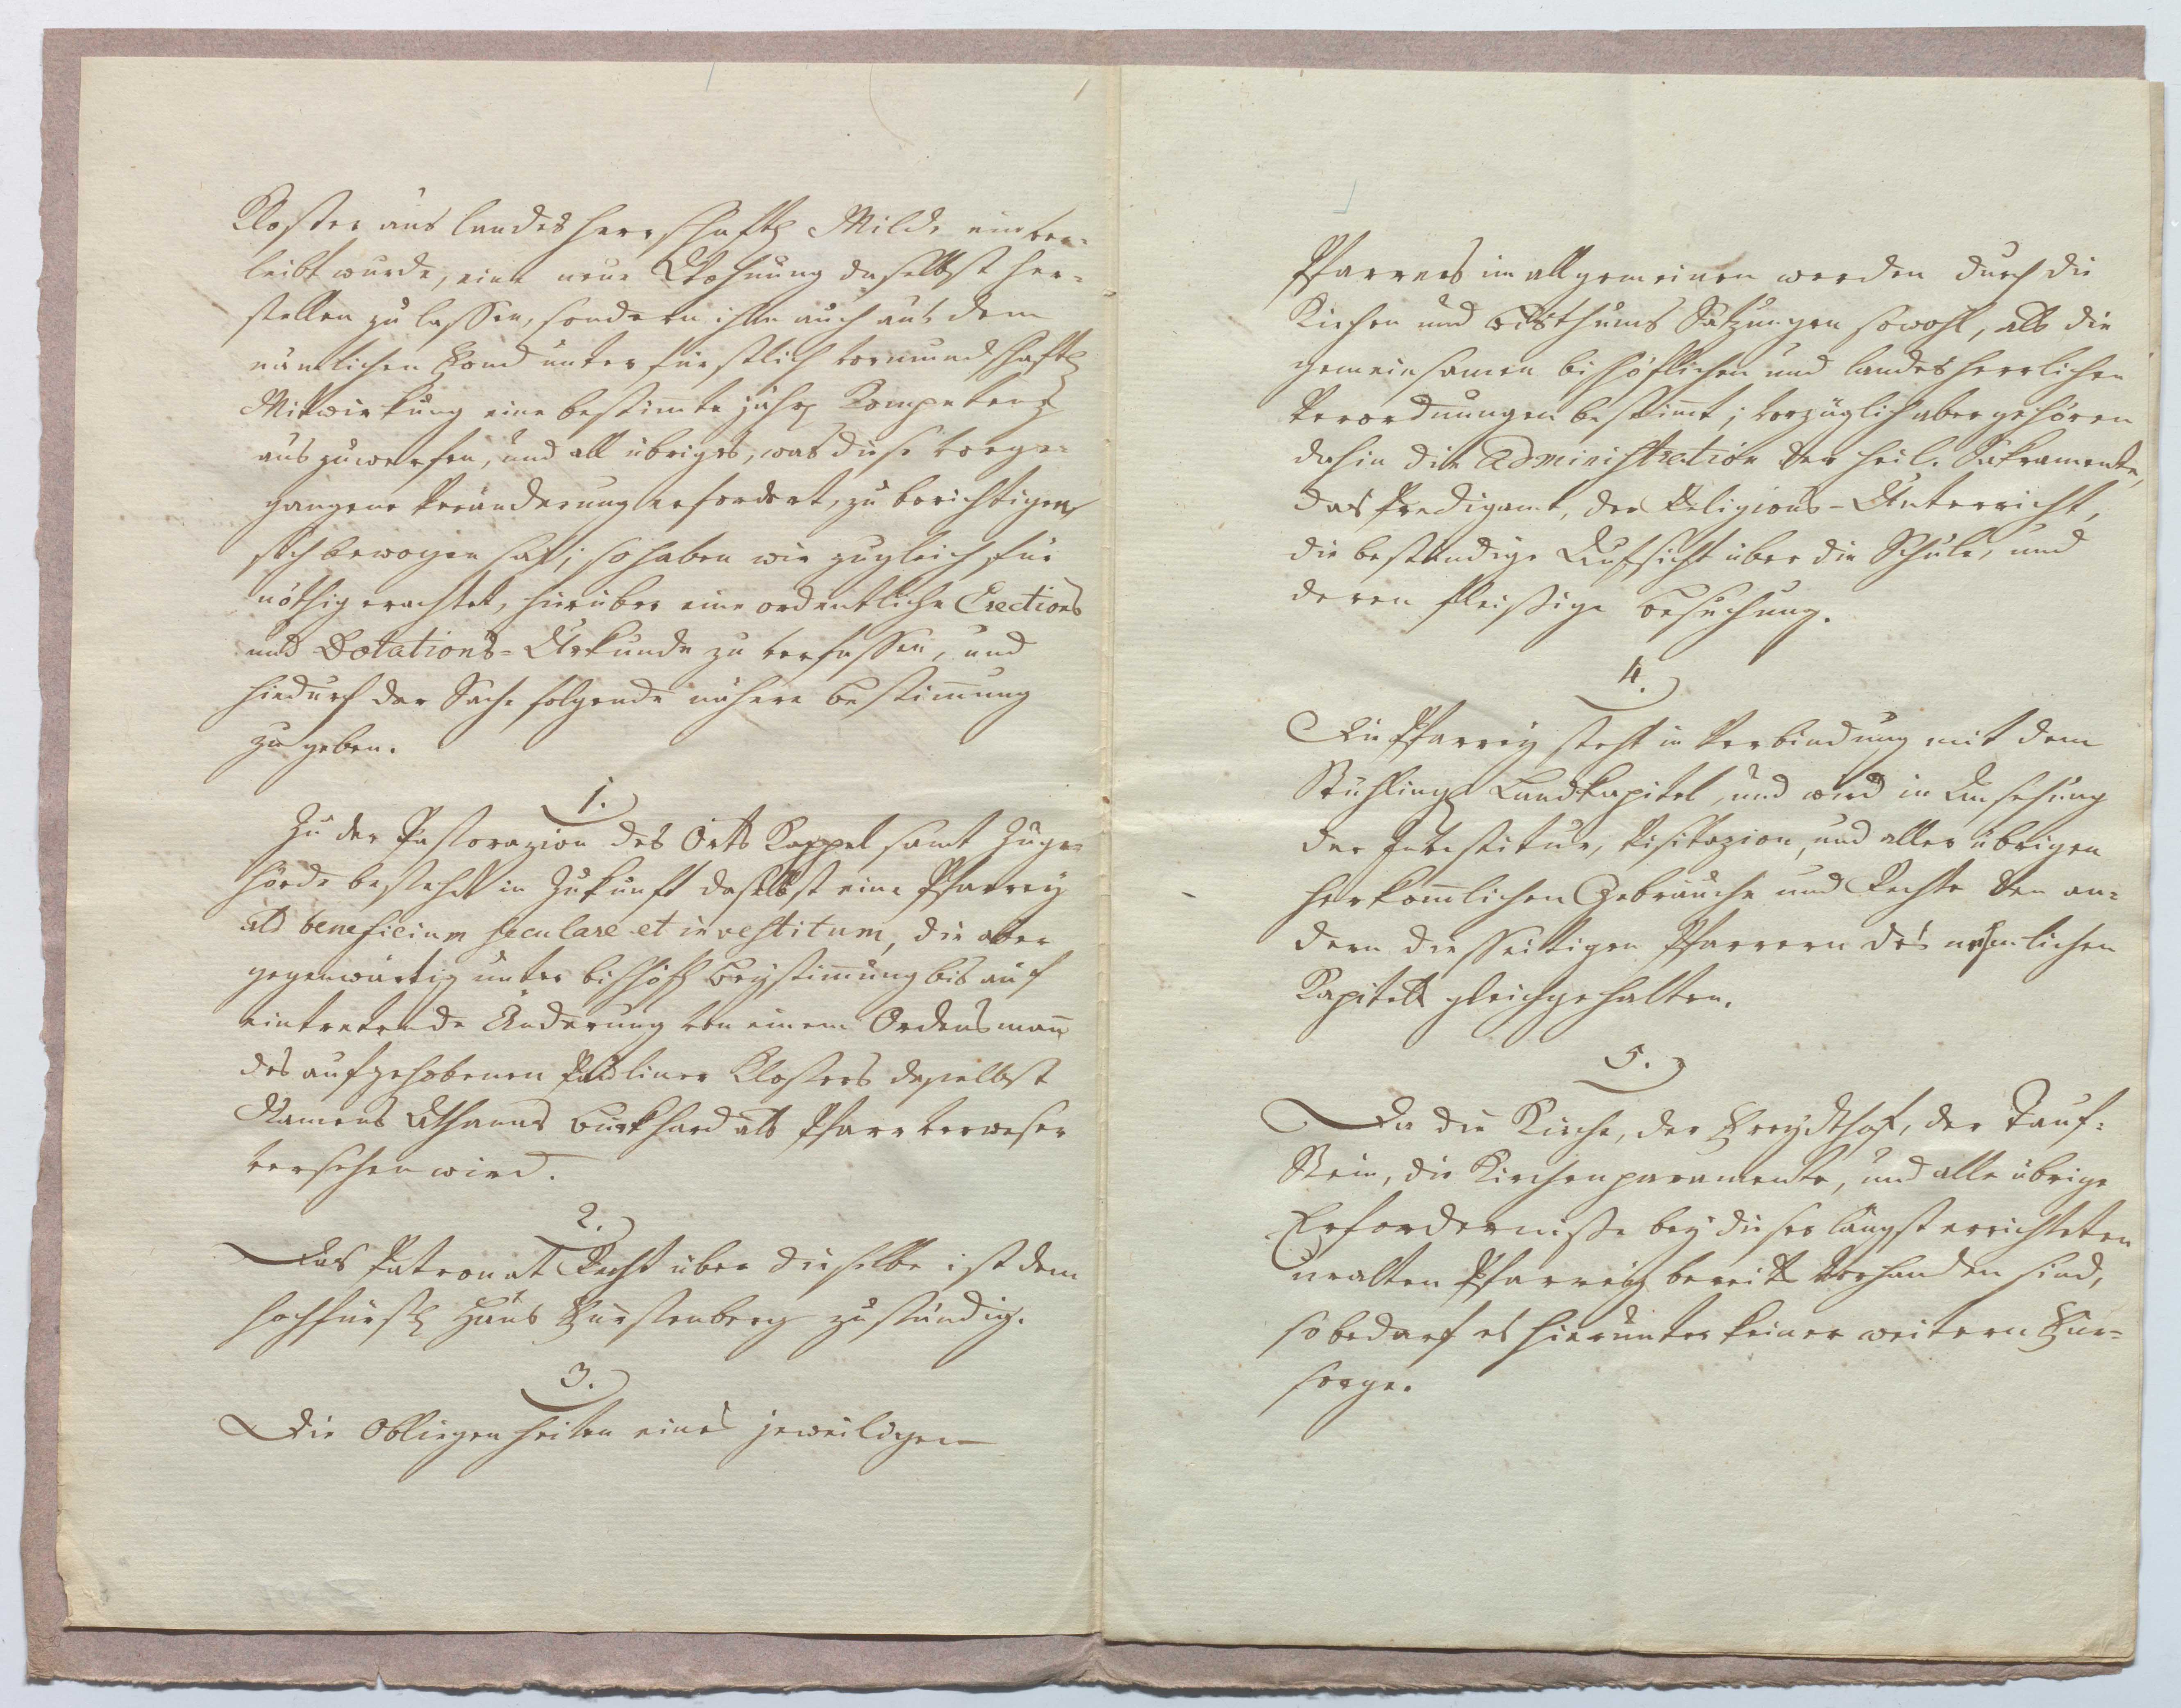 Kloster aus landesherrschaftl Milde einver=
leibt wurde, eine neue Wohnung daselbst her=
stellen zu lassen, sondern ihm auch aus dem
nämlichen Fond unter fürstlich vormundschaftl
Mitwirkung eine bestimte jährl Kompetenz
auszuwerfen, und all übriges, was diese vorge=
gangene Veränderung erfordert, zu berichtigen
sich bewogen hat; so haben wir zugleich für
nöthig erachtet, hierüber eine ordentliche Erections
und Dotations=Urkunde zu verfassen, und
hiedurch der Sache folgende nähere Bestimung
zu geben.
1.
Zu der Pastorazion des Orts Kappel samt Zuge=
hörde bestehet in Zukunft daselbst eine Pfarrey
als beneficium seculare et investitum, die aber
gegenwärtig unter bischöfl Beystimung bis auf
eintretende Änderung von einem Ordensmann
des aufgehobenen Pauliner Klosters daselbst
Namens Athanas Burkhard als Pfarrverweser
versehen wird.
2.
Das Patronat Recht über dieselbe ist dem
hochfürstl Haus Fürstenberg zuständig.
3.
Die Obliegenheiten eines jeweiligen
Pfarrers im allgemeinen werden durch die
Kirchen und Bisthums Satzungen sowohl, als die
gemeinsamen bischöflichen und landesherrlichen
Verordnungen bestimt; vorzüglich aber gehören
dahin die Administration der heil. Sakramente,
das Predigamt, der Religions-Unterricht,
die beständige Aufsicht über die Schule, und
deren fleißige Besuchung.
4.
Die Pfarrey steht in Verbindung mit dem
Stühlingl Landkapitel, und wird in Ansehung
der Investitur, Visitazion, und aller übrigen
herkomlichen Gebräuche und Rechte den an=
dern diesseitigen Pfarrern des nehmlichen
Kapitels gleichgehalten.
5.
Da die Kirche, der Freydhof, der Tauf=
Stein, die Kirchenparamente, und alle übrige
Erfordernisse bey dieser längst errichteten
uralten Pfarrey bereits vorhanden sind,
so bedarf es hierunter keiner weitern Für=
sorge.